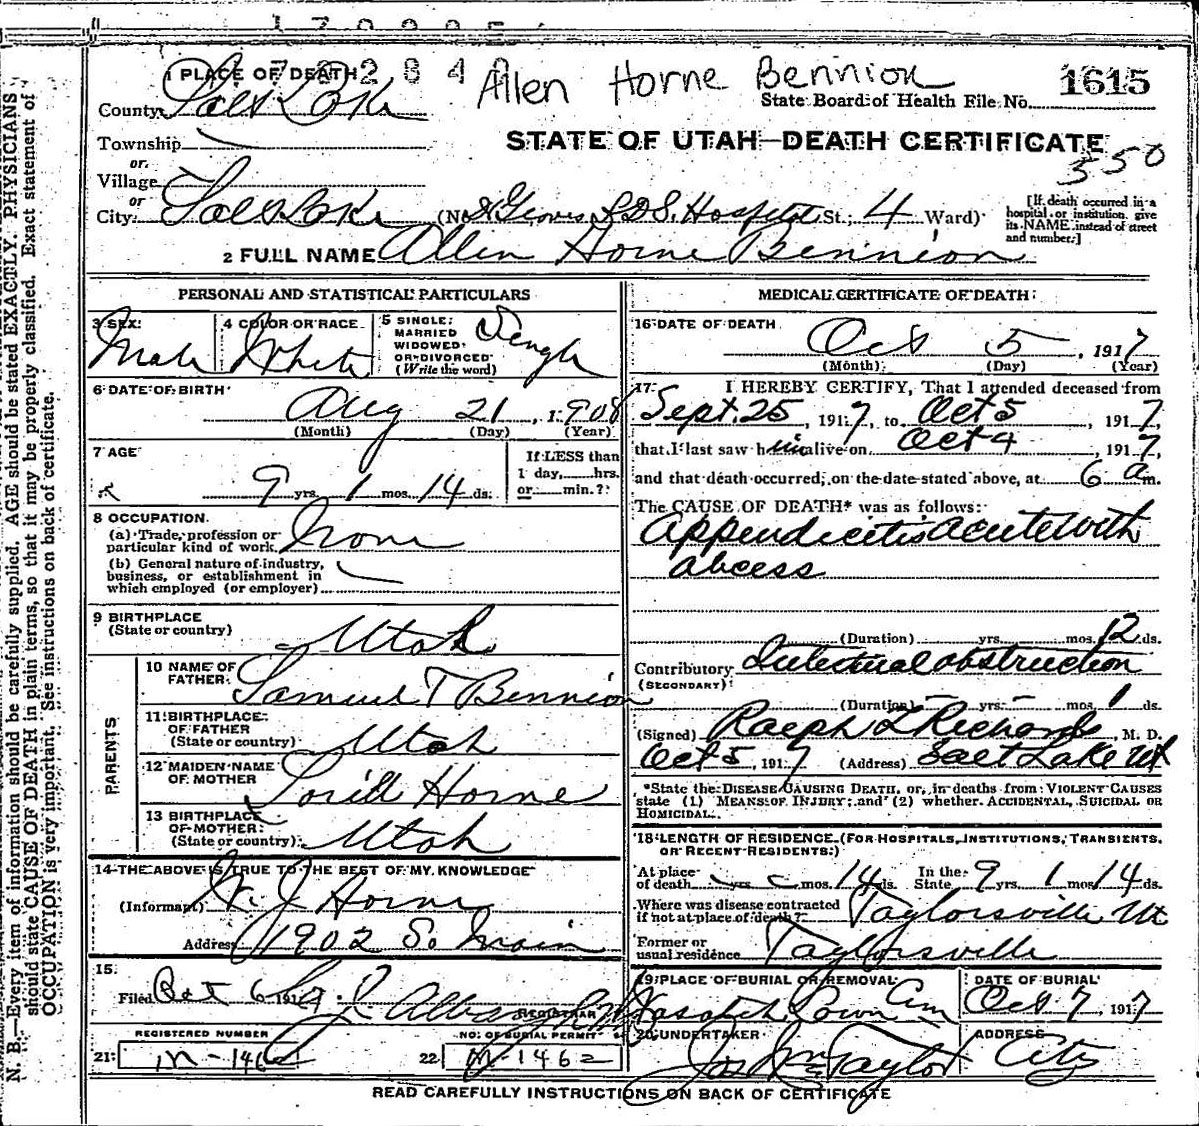 N. B.—Every item of information should be carefully supplied. AGE should be stated EXACTLY. PHYSICIANS
should state CAUSE OF DEATH in plain terms, so that it may be properly classified. Exact statement of
OCCUPATION is very important. See instructions on back of certificate.
1 PLACE OF DEATH
Allen Horne Bennion
1615
County Salt Lake
State Board of Health File No.
Township
STATE OF UTAH—DEATH CERTIFICATE
or
350
Village
or
City Salt Lake (No. L.D.S. Hospital St.; 4 Ward)
[If death occurred in a
hospital or institution, give
its NAME instead of street
and number.]
2 FULL NAME Allen Horne Bennion
PERSONAL AND STATISTICAL PARTICULARS
3 SEX: Male
4 COLOR OR RACE White
5 SINGLE, MARRIED WIDOWED OR DIVORCED (Write the word) Single
6 DATE OF BIRTH
Aug 21, 1908
(Month) (Day) (Year)
7 AGE
9 yrs. 1 mos. 14 ds.
If LESS than
1 day, hrs.
or min.?
8 OCCUPATION
(a) Trade, profession or
particular kind of work None
(b) General nature of industry,
business, or establishment in
which employed (or employer)
9 BIRTHPLACE
(State or country) Utah
PARENTS
10 NAME OF
FATHER Samuel T Bennion
11 BIRTHPLACE
OF FATHER
(State or country) Utah
12 MAIDEN NAME
OF MOTHER Horne
13 BIRTHPLACE
OF MOTHER
(State or country) Utah
14 THE ABOVE IS TRUE TO THE BEST OF MY KNOWLEDGE
(Informant) W. J Horne
Address 1902 So Main
15.
Filed Oct 6 191
REGISTRAR
REGISTERED NUMBER
21: M-1462
NO. OF BURIAL PERMIT
22 M-1462
MEDICAL CERTIFICATE OF DEATH
16 DATE OF DEATH
Oct 5, 1917
(Month) (Day) (Year)
17 I HEREBY CERTIFY, That I attended deceased from
Sept. 25, 1917, to Oct 5, 1917,
that I last saw him alive on Oct 4, 1917,
and that death occurred, on the date stated above, at 6 a m.
The CAUSE OF DEATH* was as follows:
Appendicitis acute with
abcess
(Duration) yrs. mos. 12 ds.
Contributory Intestinal obstruction
(SECONDARY)
(Duration) yrs. mos. 1 ds.
(Signed) Ralph T Richards, M. D.
Oct 5, 1917 (Address) Salt Lake Ut
*State the DISEASE CAUSING DEATH, or, in deaths from VIOLENT CAUSES
state (1) MEANS OF INJURY; and (2) whether ACCIDENTAL, SUICIDAL OR
HOMICIDAL.
18 LENGTH OF RESIDENCE (FOR HOSPITALS, INSTITUTIONS, TRANSIENTS,
OR RECENT RESIDENTS)
At place
of death yrs. mos. 14 ds.
In the
State 9 yrs. 1 mos. 14 ds.
Where was disease contracted
if not at place of death? Taylorsville Ut
Former or
usual residence Taylorsville
19 PLACE OF BURIAL OR REMOVAL
Wasatch Lawn Cem
DATE OF BURIAL
Oct 7, 1917
20 UNDERTAKER
Jos Wm Taylor
ADDRESS
City
READ CAREFULLY INSTRUCTIONS ON BACK OF CERTIFICATE